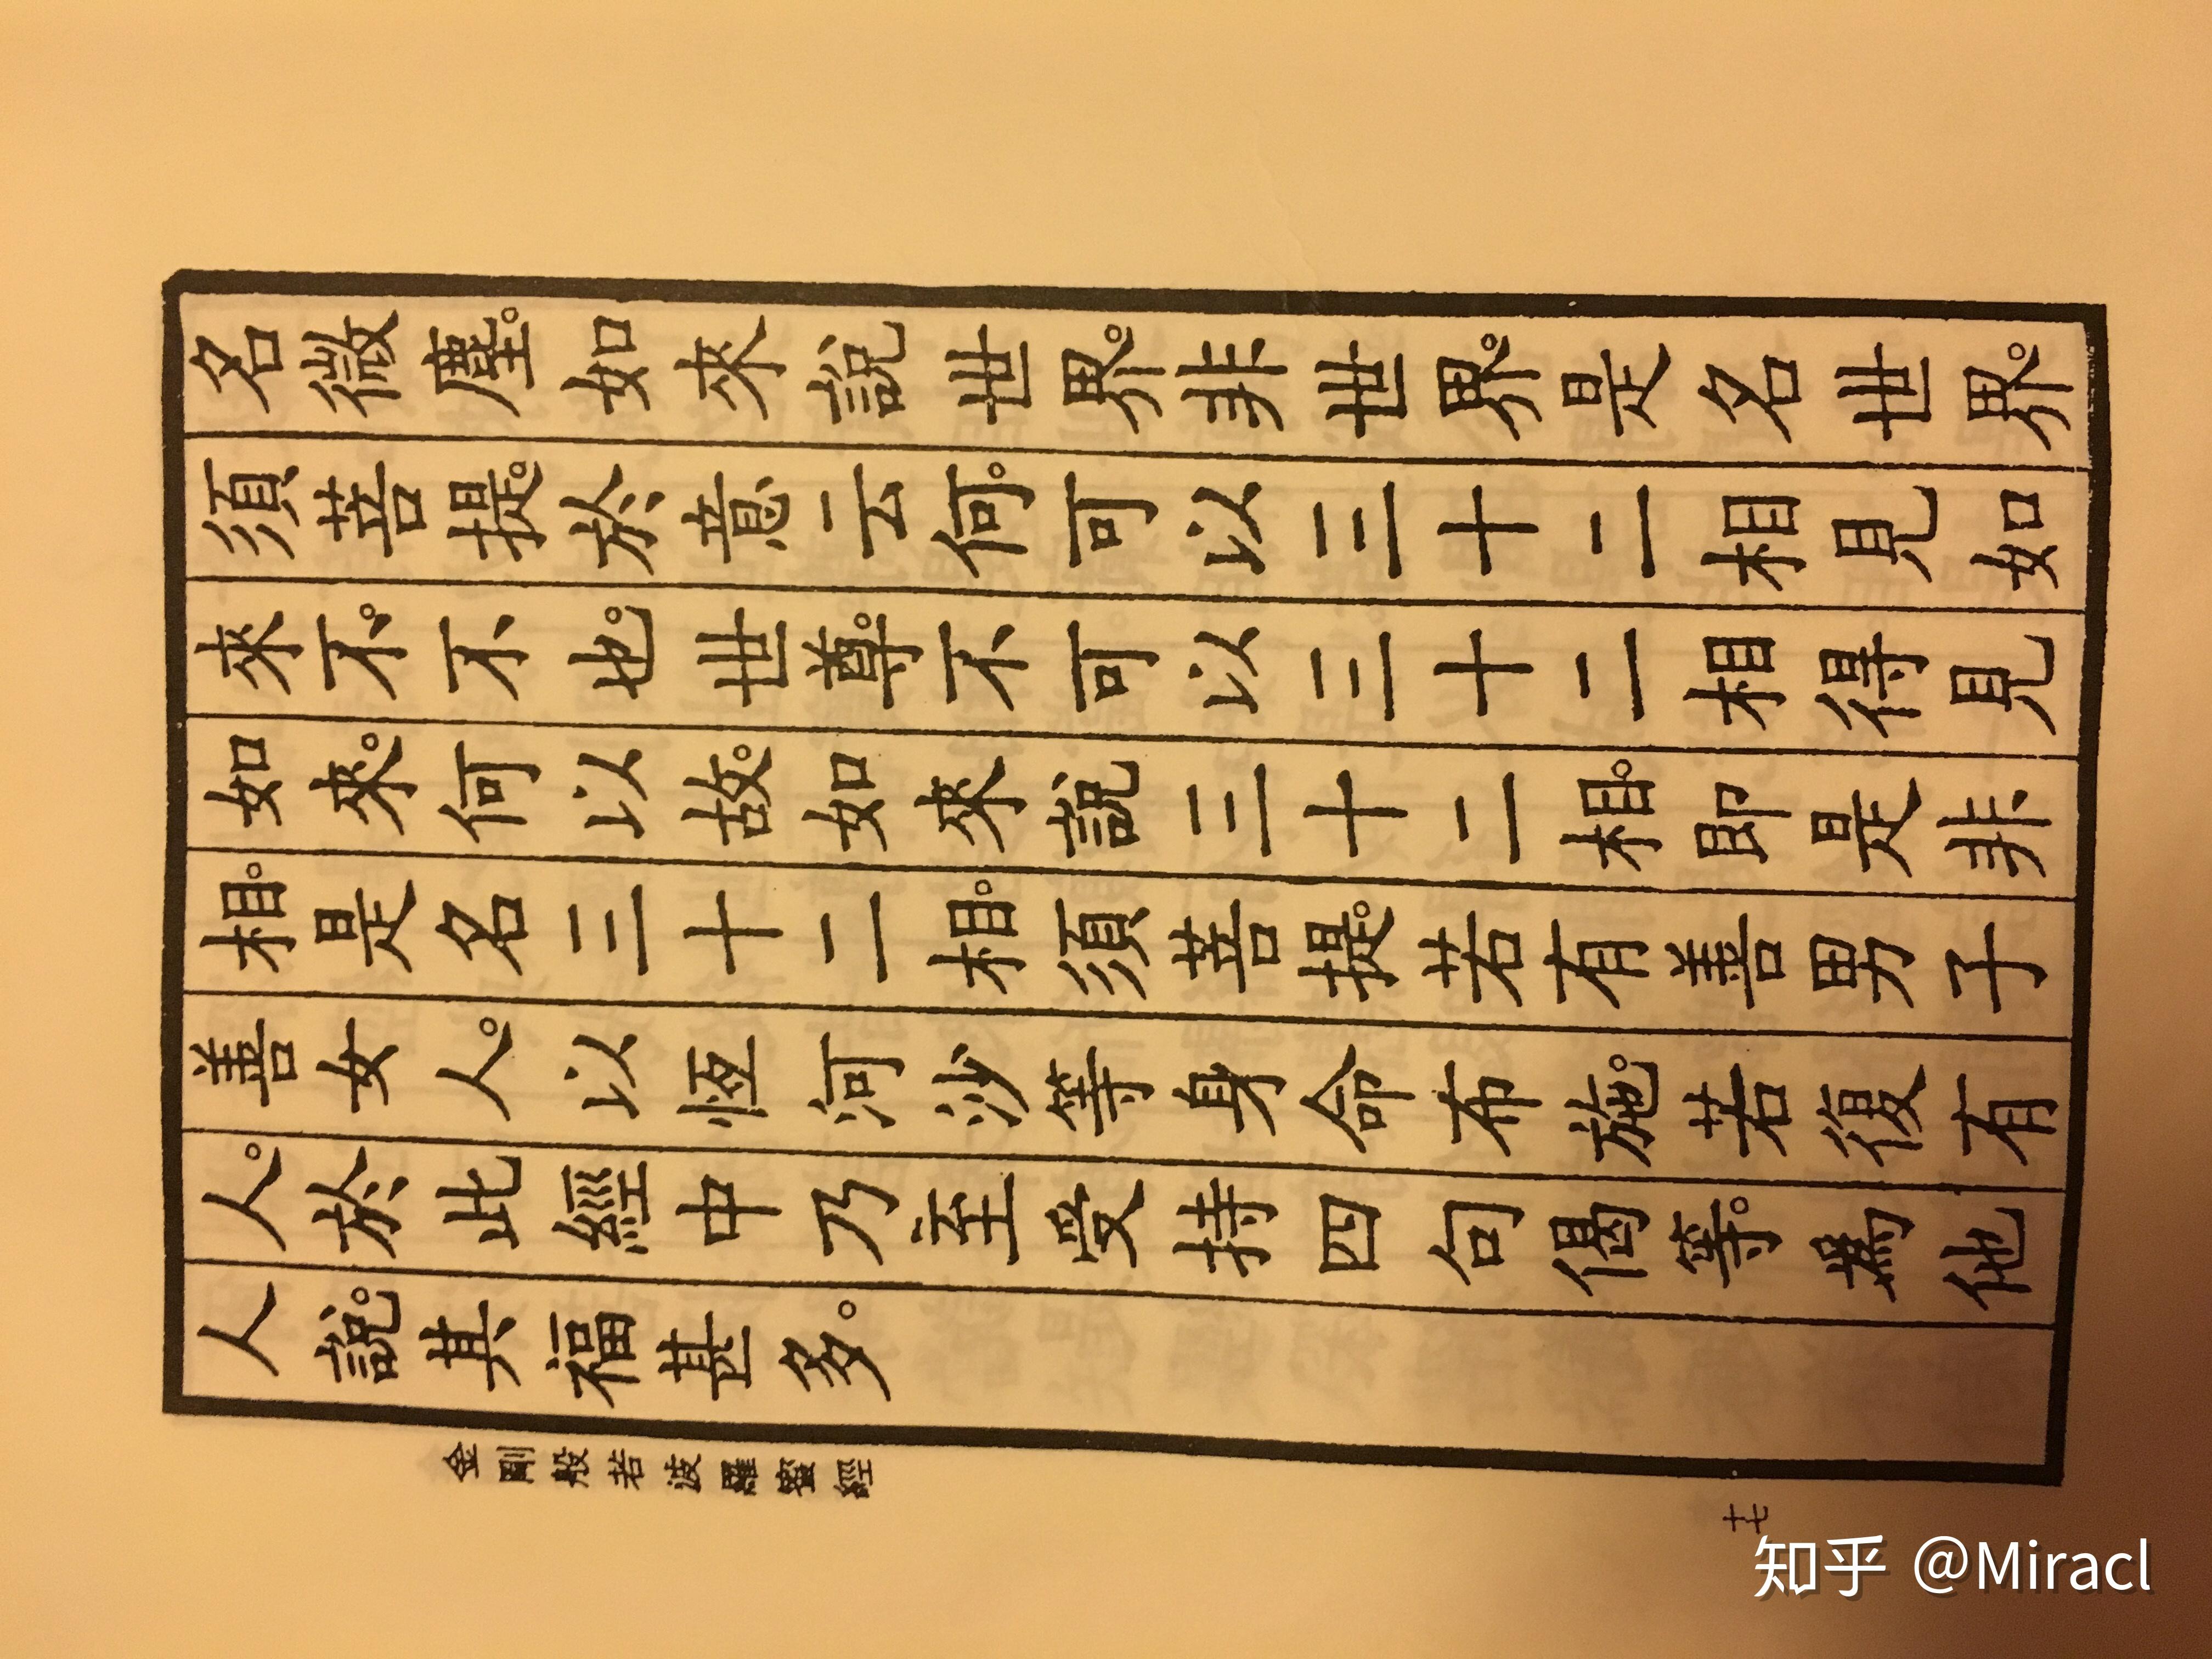 名微塵。如來說世界。非世界。是名世界。
須菩提。於意云何。可以三十二相見如
來不。不也。世尊。不可以三十二相得見
如來。何以故。如來說三十二相。即是非
相。是名三十二相。須菩提。若有善男子
善女人。以恆河沙等身命布施。若復有
人。於此經中乃至受持四句偈等。為他
人說。其福甚多。
金剛般若波羅蜜經
十七
知乎 @Miracl